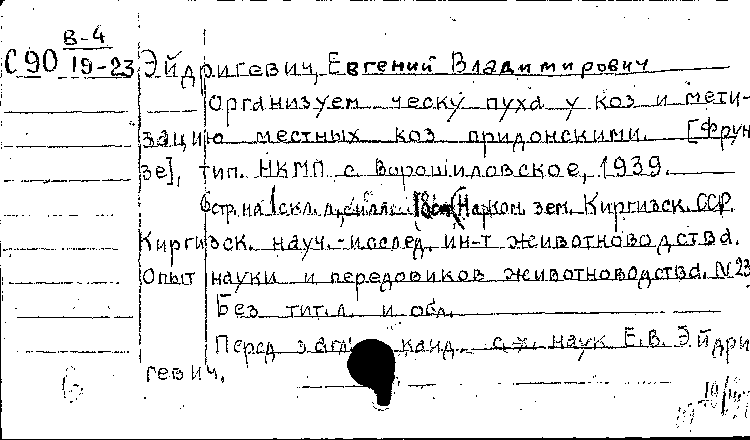 В-4
С90 19-23 Эйдригевич, Евгений Владимирович
Организуем ческу пуха у коз и мети-
зацию местных коз придонскими. [Фрун
зе], тип. НКМП с. Ворошиловское, 1939.
6стр. на 1 скл. л. (Нарком. зем. Киргизск. ССР.
Киргизск. науч.-исслед. ин-т животноводства.
Опыт науки и передовиков животноводства. №23
Без тит. л. и обл.
Перед загл. канд. с.-х. наук Е.В. Эйдри
гевич.
6